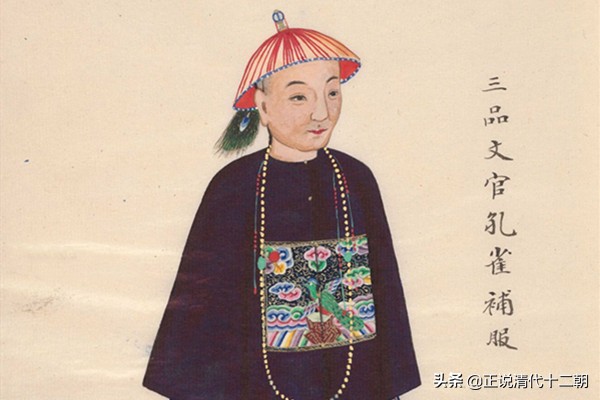 三品文官孔雀補服
头条 @正说清代十二朝